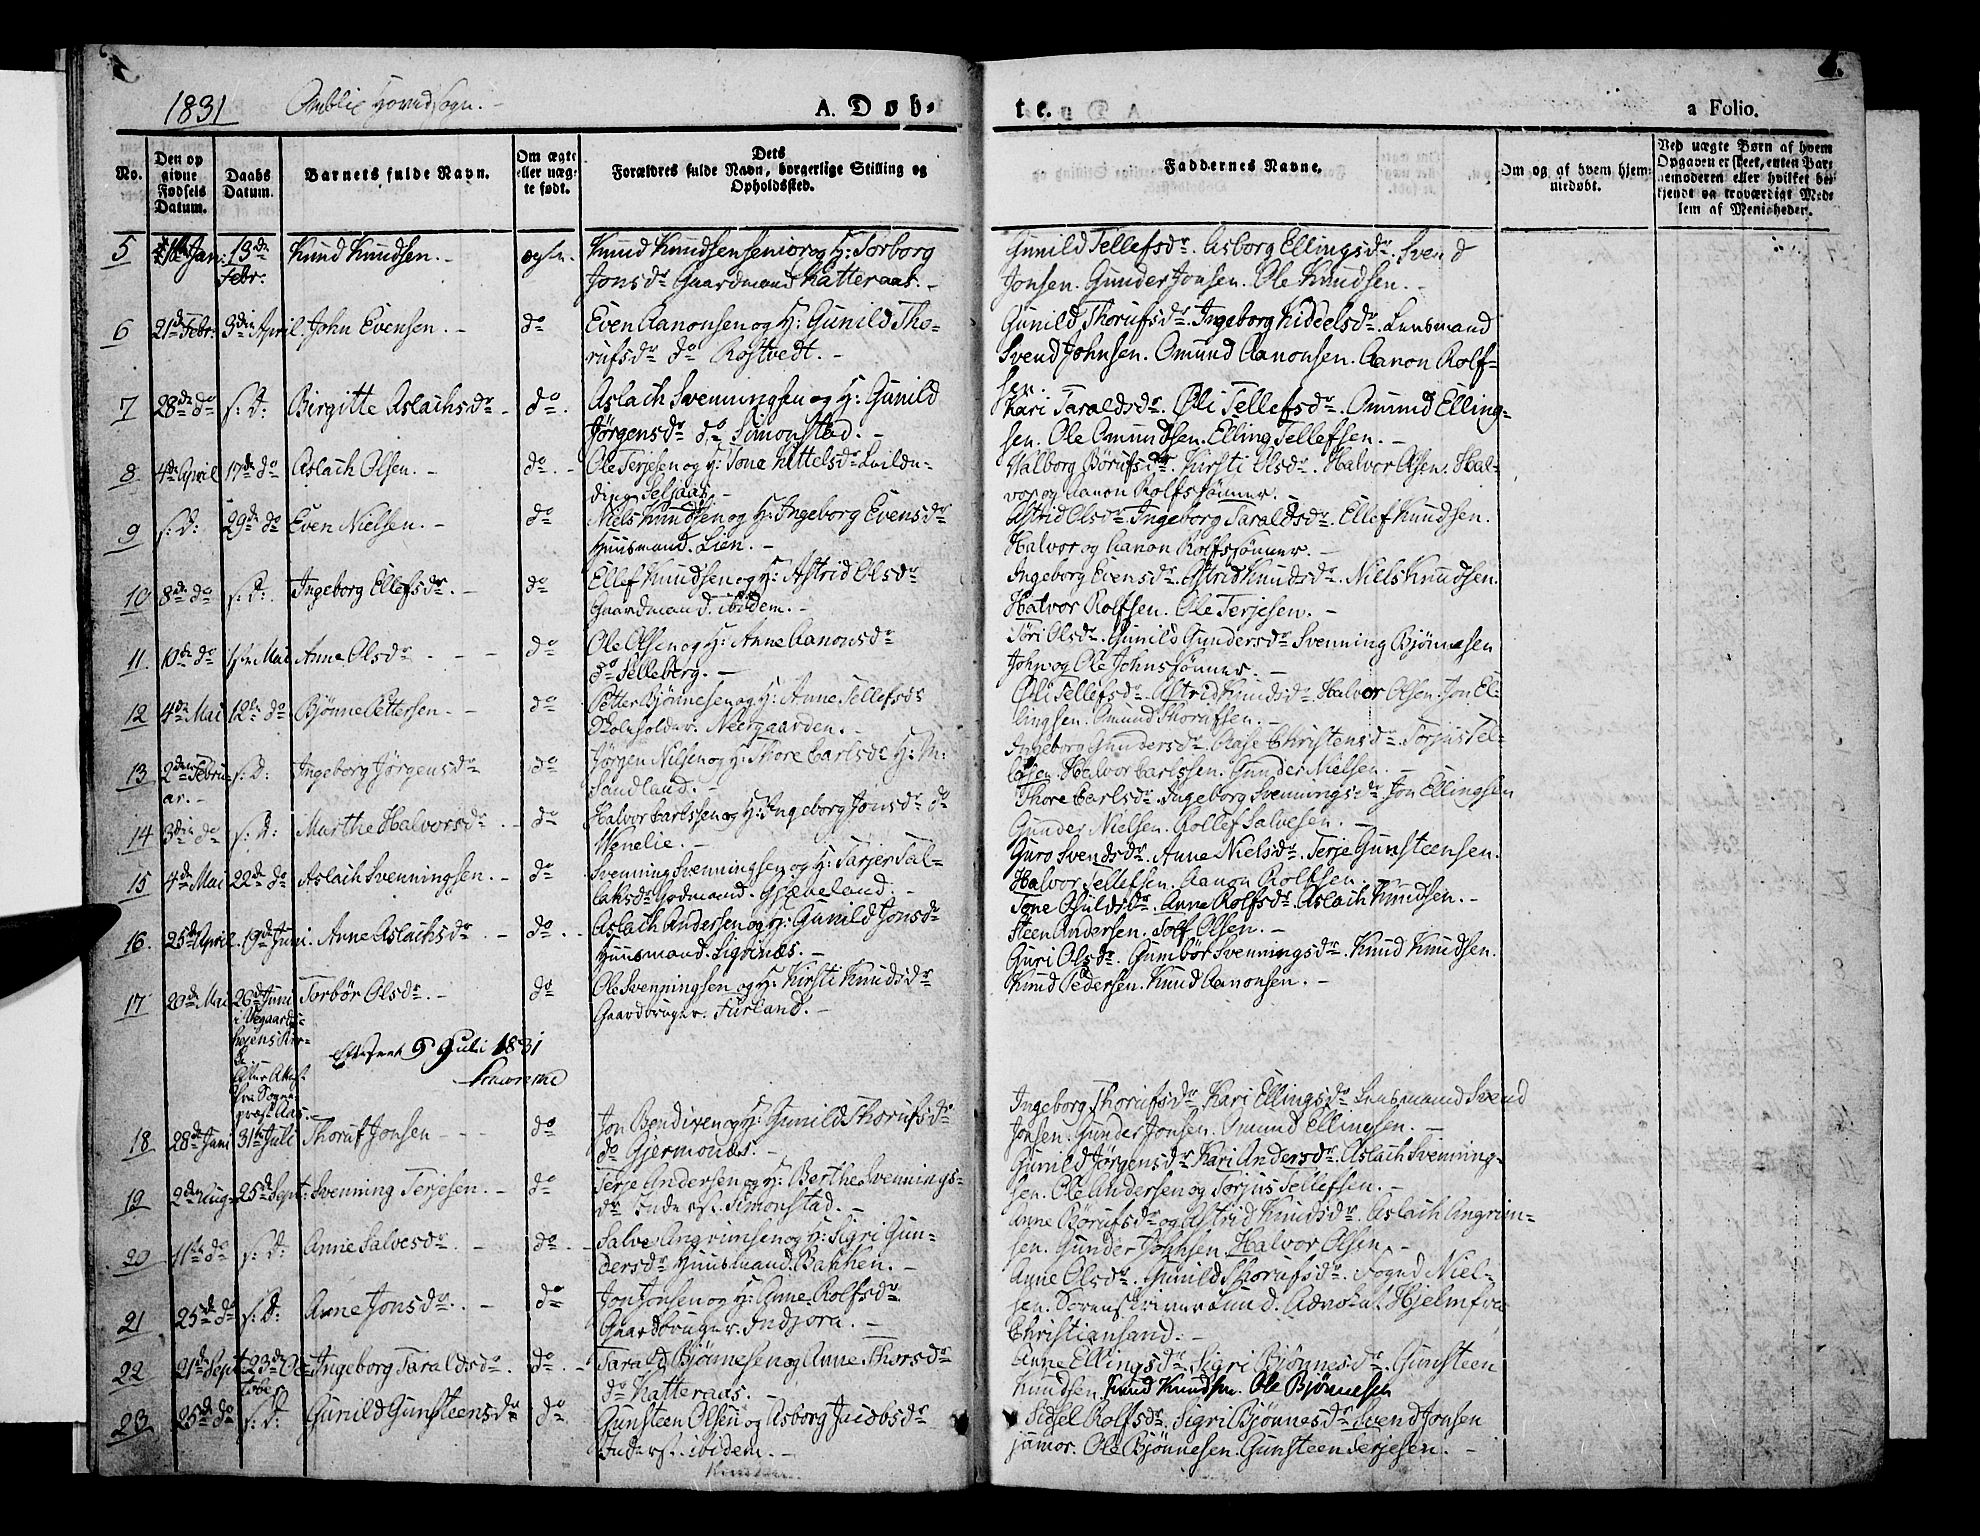 1831 Amlie Hovedsogn.
A. Døb-
te.
a Folio.
No.
Den op
givne
Fødsels
Datum.
Daabs
Datum.
Barnets fulde Navn.
Om ægte
eller uæg-
te født.
Dets
Forældres fulde Navn, borgerlige Stilling og
Opholdssted.
Faddernes Navne.
Om og af hvem hjem-
medøbt.
Ved uægte Børn af hvem
Opgaven er skeet, enten Bar-
nemoderen eller hvilket be-
kjendt og troværdigt Med-
lem af Menigheden.
5 Jan: 13de Knud Knudsen. - ægte. Knud Knudsen senior og H: Torborg
Febr. Jonsdr Gaardmand Hatteraas. -
Gunild Tellefsdr. Asborg Ellingsdr. Svend
Jonsen. Gunder Jonsen. Ole Knudsen. -
6 21de Febr: 3die April. John Evensen. - do Even Aanonsen og H: Gunild Tho-
rufsdr do Rostvedt. -
Gunild Thorufsdr. Ingeborg Kiddelsdr. Lensmand
Svend Johnsen. Omund Aanonsen. Aanon Rolf-
sen. -
7 28de do s: d: Birgitte Aslachsdr - do. Aslach Svenningsen og H: Gunild
Jørgensdr do Simonstad. -
Kari Taraldsdr. Øli Tellefsdr. Omund Elling-
sen. Ole Omundsen. Elling Tellefsen. -
8 4de April 17de do Aslach Olsen. - do. - Ole Terjesen og H: Tone Kittelsdr
Seljaas -
Walborg Børufsdr. Kirsti Olsdr. Halvor Olsen. Hal-
vor og Aanon Rolfsønner. -
9 s: d: 29de do Even Nielsen. - do Niels Knudsen og H: Ingeborg Evensdr
Huusmand. Lien. -
Astrid Olsdr Ingeborg Taraldsdr. Ellef Knudsen.
Halvor og Aanon Rolfsønner. -
10 8de do s: d: Ingeborg Ellefsdr. - do Ellef Knudsen og H: Astrid Olsdr
Gaardmand. ibidem. -
Ingeborg Evensdr. Astrid Knudsdr. Niels Knudsen.
Halvor Rolfsen. Ole Terjesen. -
11. 10de do Mai Anne Olsdr - - - do Ole Olsen og H: Anne Aanonsdr
do Selleberg. -
Tøri Olsdr. Gunild Gundersdr Svenning Bjønnesen
John og Ole Johnsønner. -
12 4de Mai 12te do Bjønne Pettersen. - - do Petter Bjønnesen og H: Anne Tellefsdr
Neergaarden. -
Øli Tellefsdr. Astrid Knudsdr. Halvor Olsen. Jon El-
lingsen. Omund Thorufsen. -
13 2den Febru- s: d: Ingeborg Jørgensdr do Jørgen Nilsen og H: Thore Carlsdr H: M:
ar. - Sandland. -
Ingeborg Gundersdr. Aase Christensdr. Torjus Tel-
lefsen. Halvor Carlssen. Gunder Nielsen. -
14 3die do s: d: Marthe Halvorsdr. - do Halvor Carlssen og H: Ingeborg Jonsdr do
Wenelie. -
Thore Carlsdr. Ingeborg Svenningsdr Jon Ellingsen
Gunder Nielsen. Rollef Salvesen. -
15 4de Mai 22de do Aslach Svenningsen. - do Svenning Svenningsen og H: Tarjer Tal-
laksdr Godmand. Gjæveland. -
Guro Svendsdr. Anne Nielsdr. Terje Gunsteensen.
Halvor Tellefsen. Aanon Rolfsen. -
16. 25de April. 19de Juni. Anne Aslachsdr - do. - Aslach Andersen og H: Gunild Jonsdr
Huusmand. Sigrinæs. -
Tone Osuldsdr. Anne Rolfsdr. Aslach Knudsen. -
Steen Andersen. Tolf Olsen. -
17 20de Mai 26de Juni Torbør Olsdr. - do Ole Svenningsen og H: Kirsti Knudsdr
Gaardbruger. Furland. -
i Vegaards-
hejens Kir-
ke
efter Attest
fra Sogne-
præst Aas. -
Guri Olsdr. Gumbør Svenningsdr. Knud Knudsen.
Knud Pedersen. Knud Aanonsen. -
Efterseet 9 Juli 1831
18 28de Juni 31te Juli Thoruf Jonsen - - - do Jon Bendixen og H: Gunild Thorufsdr
do Gjermonæs. -
Ingeborg Thorufsdr Kari Ellingsdr Lensmand Svend
Jonsen. Gunder Jonsen. Omund Ellingsen. -
19 2den Aug. 25de Sept: Svenning Terjesen. - do Terje Andersen og H: Berthe Svennings-
dr Inderst. Simonstad. -
Gunild Jørgensdr Kari Andersdr. Aslach Svenning-
sen. Ole Andersen og Torjus Tellefsen. -
20 11te do s: d: Anne Salvesdr. - do. - Salve Angrimsen og H: Sigri Gun-
dersdr Huusmand. Bakken. -
Anne Børufsdr og Astrid Knudsdr. Aslach Angrim-
sen. Gunder Johnsen. Halvor Olsen. -
21 25de do s: d: Anne Jonsdr. - do Jon Jonsen og H: Anne Rolfsdr.
Gaardbruger. Indjora. -
Anne Olsdr. Gunild Thorufsdr. Fogned Niel-
sen. Sorenskriver Lund. Advokat Hjelm fra
Christiansand. -
22 21de Sept 23de Oc- Ingeborg Taraldsdr. do. - Tarald Bjønnesen og Anne Thorsdr
tober do Hatteraas. -
Anne Ellingsdr. Sigri Bjønnesdr. Gunsteen
Knudsen. Knud Knudsen. Ole Bjønnesen
23 25de do s: d: Gunild Gunsteensdr do Gunsteen Olsen og Asborg Jacobsdr
Inderst. ibidem. -
Sidsel Rolfsdr. Sigri Bjønnesdr Svend Jonsen
junior. Ole Bjønnesen. Gunsteen Terjesen. -